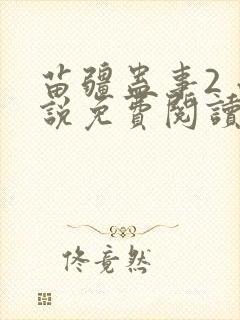 苗疆蛊事2
說免費閱讀
佟竟然